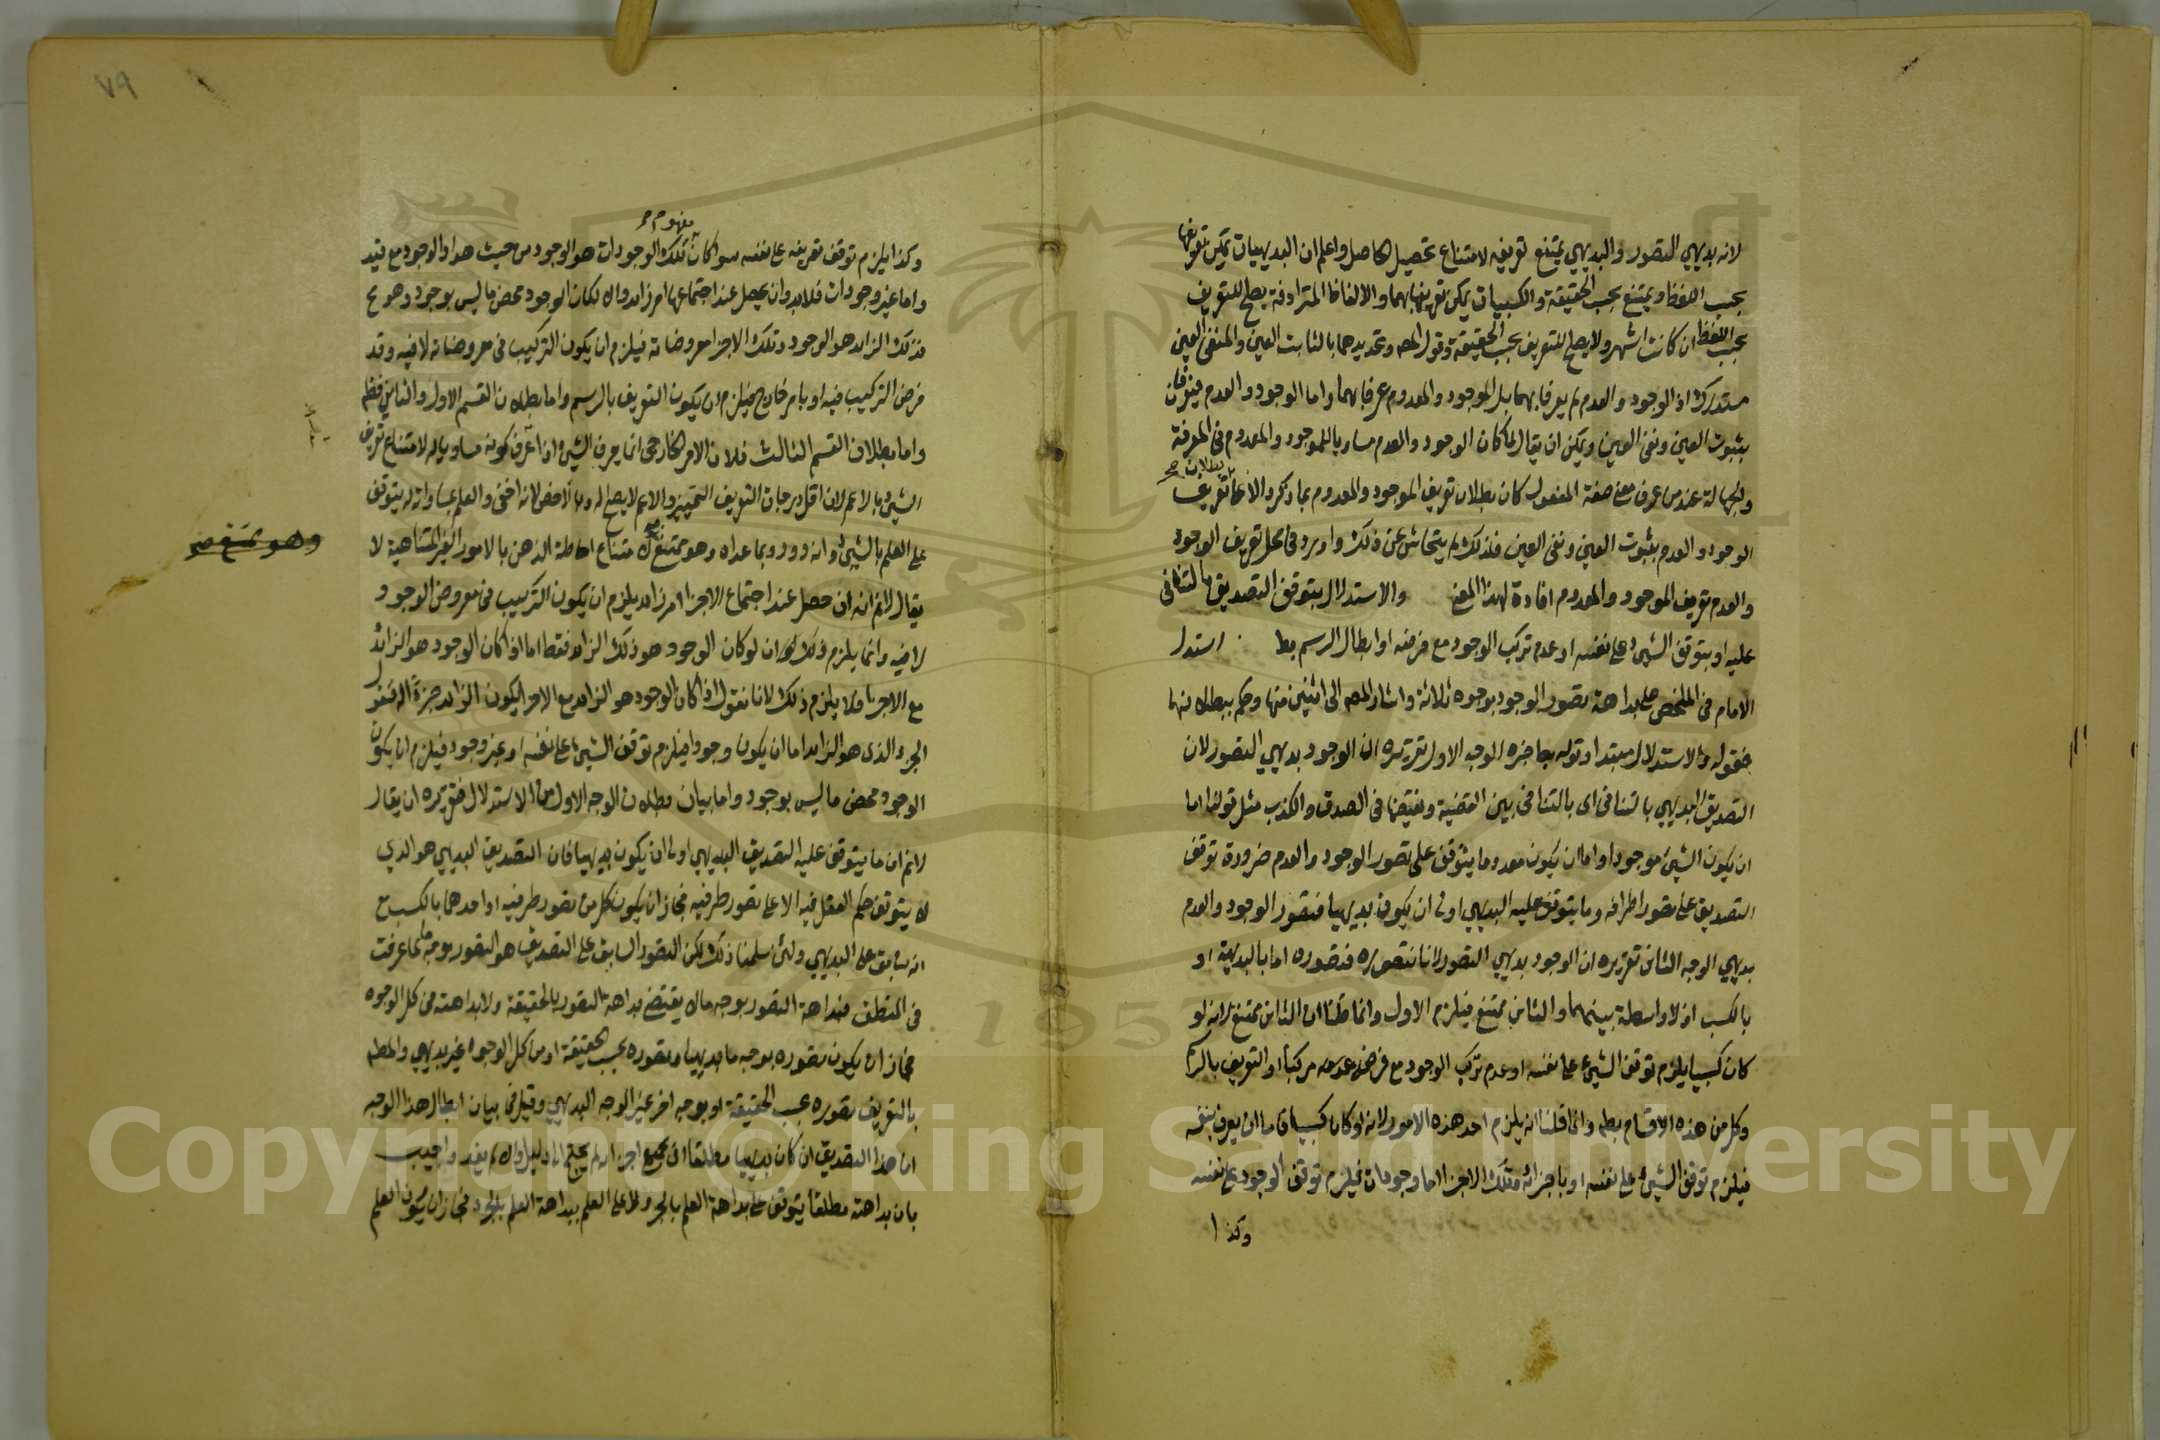 لانه بديهي التصور والبديهي يمتنع تعريفه لامتناع تحصيل الحاصل واعلم ان البديهيات يمكن تعريفها
بحسب اللفظ ويمتنع بحسب الحقيقة والكسبيات يمكن تعريفها بهما والالفاظ المترادفة يصلح للتعريف
بحسب اللفظ ان كانت اشهر ولا يصلح للتعريف بحسب الحقيقة وقول المصه وتحديدهما بالثابت العين والمنفي العين
مستدرك اذ الوجود والعدم لم يعرفا بهما بل الموجود والمعدوم عرفا بهما واما الوجود والعدم فيعرفان
بثبوت العين ونفي العين ويمكن ان يقال لما كان الوجود والعدم مساويا للموجود والمعدوم في المعرفة
والجهالة عند من عرف معنى صفة المفعول كان بطلان تعريف الموجود والمعدوم بما ذكر دالا على بطلان تعريف
الوجود والعدم بثبوت العين ونفي العين فلذلك لم يتحاش عن ذلك واورد في محل تعريف الوجود
والعدم تعريف الموجود والمعدوم افادة لهذا المعنى والاستدلال بتوقف التصديق بالتنافي
عليه او بتوقف الشيء على نفسه او عدم تركب الوجود مع فرضه او ابطال الرسم بط استدل
الامام في الملخص على بداهة تصور الوجود بوجوه ثلاثة واشار المصه الى اثنين منها وحكم ببطلانهما
فقوله والاستدلال مبتدا وقوله بط خبره الوجه الاول تقريره ان الوجود بديهي التصور لان
التصديق البديهي بالتنافي اى بالتنافي بين القضية ونقيضها في الصدق والكذب مثل قولنا اما
ان يكون الشيء موجودا واما ان يكون معدوما يتوقف على تصور الوجود والعدم ضرورة توقف
التصديق على تصور اطرافه وما يتوقف عليه البديهي اولى ان يكون بديهيا فتصور الوجود والعدم
بديهي الوجه الثاني تقريره ان الوجود بديهي التصور لانا نتصوره فتصوره اما بالبديهة او
بالكسب اذ لا واسطة بينهما والثاني ممتنع فيلزم الاول وانما قلنا ان الثاني ممتنع لانه لو
كان كسبيا يلزم توقف الشيء على نفسه او عدم تركب الوجود مع فرض كونه مركبا او التعريف بالرسم
وكل من هذه الاقسام بط وانما قلنا انه يلزم احد هذه الامور لانه لو كان كسبيا فاما ان يعرف بنفسه
فيلزم توقف الشيء على نفسه او باجزائه فتلك الاجزا اما وجودات فيلزم توقف الوجود على نفسه
وكذا
٧٩
مفهوم
وكذا يلزم توقف تعريفه على نفسه سوا كان تلك الوجودات هو الوجود من حيث هو او الوجود مع قيد
واما غير وجودات فلابد وان يحصل عند اجتماعها امر زائد والا لكان الوجود محض ما ليس بوجود وهو مح
فذلك الزايد هو الوجود وتلك الاجزا معروضاته فيلزم ان يكون التركيب في معروضاته لا فيه وقد
فرض التركيب فيه او بامر خارج فيلزم ان يكون التعريف بالرسم واما بطلان القسم الاول والثاني فظم
واما بطلان القسم الثالث فلان الامر الخارجي انما يعرف الشيء اذا عرف كونه مساويا له لامتناع تعريف
الشيء بالاعم لان اقل درجات التعريف التمييز والاعم لا يصلح له وبالاخص لانه اخفى والعلم بمساواته له يتوقف
على العلم بالشيء وانه دور وبما عداه وهو ممتنع لامتناع احاطة الذهن بالامور الغير المتناهية لا
وهو ممتنع صح
يقال لانم انه ان حصل عند اجتماع الاجزا امر زائد يلزم ان يكون التركيب في معروض الوجود
لا فيه وانما يلزم ذلك ان لو كان الوجود هو ذلك الزايد فقط اما اذا كان الوجود هو الزائد
مع الاجزا فلا يلزم ذلك لانا نقول اذا كان الوجود هو الزايد مع الاجزا ليكون الزايد جزءا له فنقول
الجزء الذي هو الزايد اما ان يكون وجودا فيلزم توقف الشيء على نفسه او غير وجود فيلزم ان يكون
الوجود محض ما ليس بوجود واما بيان بطلان الوجه الاول من الاستدلال فتقريره ان يقال
لانم ان ما يتوقف عليه التصديق البديهي اولى ان يكون بديهيا فان التصديق البديهي هو الذي
لا يتوقف حكم العقل فيه الا على تصور طرفيه فجاز ان يكون كل من تصور طرفيه او احدهما بالكسب مع
انه سابق على البديهي ولئن سلمنا ذلك لكن التصور السابق على التصديق هو التصور بوجه ما على ما عرفت
في المنطق فبداهة التصور بوجه ما لا يقتضي بداهة التصور بالحقيقة ولا بداهته من كل الوجوه
فجاز ان يكون تصوره بوجه ما بديهيا وتصوره بحسب الحقيقة او من كل الوجوه غير بديهي والمطلوب
بالتعريف تصوره بحسب الحقيقة او بوجه اخر غير الوجه البديهي وقيل في بيان ابطال هذا الوجه
ان هذا التصديق ان كان بديهيا مطلقا اى بجميع اجزائه لم يحتج الى دليل والا لم يفد واجيب
بان بداهته مطلقا يتوقف على بداهة العلم بالجزء لا على العلم ببداهة العلم بالجزء فجاز ان يكون العلم
Copyright © King Saud University
1957